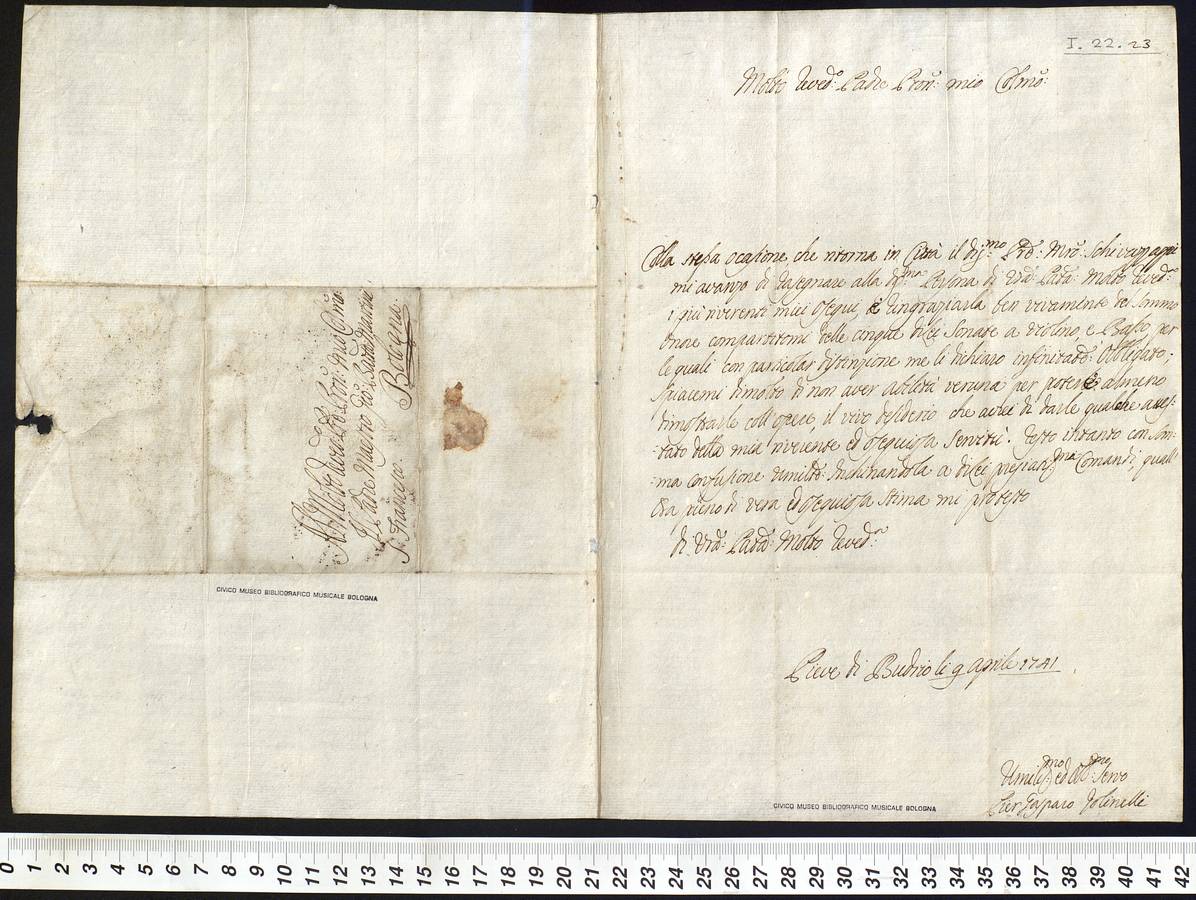 I. 22. 23
Molto Revd.o Padre Pron: mio Col.mo
Colla stessa ocasione, che ritorna in Città il Sig.mo Pre: Mro: Schivazzappa
mi avanzo di rasegnare alla dg.ma Persona di Vrã: Patã: Molto Revd.a
i più riverenti miei osequi, e ringraziarla ben vivamente del sommo
onore compartitomi delle cinque dilei Sonate a violino, e Basso, per
le quali con particolar distinzione me li dichiaro infinitam: Obbligato;
Spiacemi dimolto di non aver abilità veruna per potere almeno
dimostrarle coll'opere il vivo desiderio che avrei di darle qualche attes-
-tato della mia riverente ed ossequiosa Servitù. Resto intanto con som-
-ma confusione umilte Inchinandola a dilei pregiatis.ma Comandi, quall'
Ora pieno di vera ed ossequiosa Stima mi protesto
di Vrã: Patã: Molto Revd.a
Pieve di Budrio li 9 Aprile 1741
Umilis.mo ed Obb.mo Servo
Pier Gasparo
CIVICO MUSEO BIBLIOGRAFICO MUSICALE BOLOGNA
Al Molto Revdo Pre Pron: mio Colmo
Il Padre Maestro Gio: Batta Martini
S. Francesco. Bologna
CIVICO MUSEO BIBLIOGRAFICO MUSICALE BOLOGNA
0 1 2 3 4 5 6 7 8 9 10 11 12 13 14 15 16 17 18 19 20 21 22 23 24 25 26 27 28 29 30 31 32 33 34 35 36 37 38 39 40 41 42